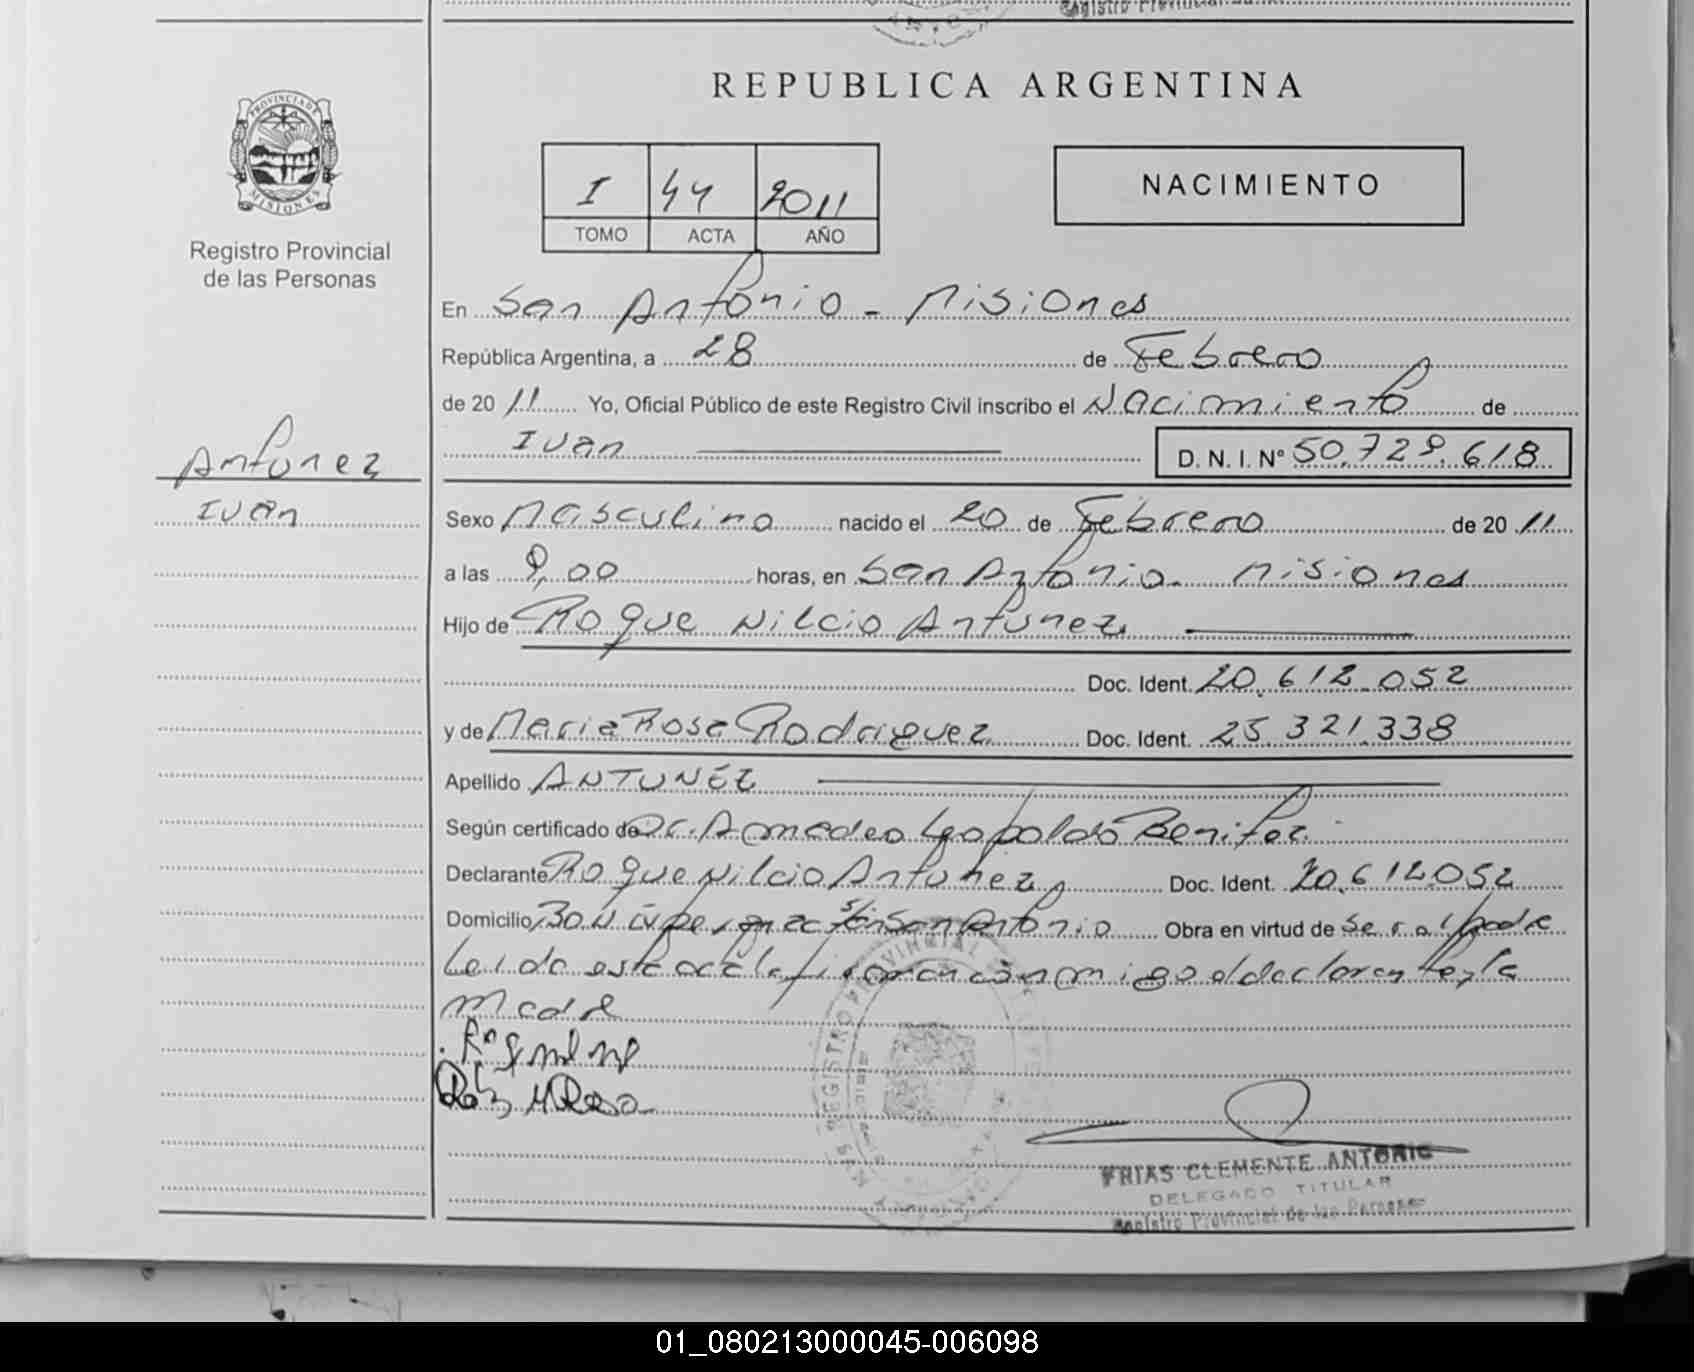 Registro Provincial
REPUBLICA ARGENTINA
PROVINCIA DE
MISIONES
Registro Provincial
de las Personas
I 44 2011
TOMO ACTA AÑO
NACIMIENTO
En San Antonio - Misiones
República Argentina, a 28 de Febrero
de 20 11 Yo, Oficial Público de este Registro Civil inscribo el Nacimiento de
Ivan D. N. I. Nº 50.729.618
Antunez
Ivan
Sexo Masculino nacido el 20 de Febrero de 20 11
a las 9,00 horas, en San Antonio - Misiones
Hijo de Roque Nilcio Antunez
Doc. Ident. 20.612.052
y de Maria Rosa Rodriguez Doc. Ident. 25.321.338
Apellido ANTUNEZ
Según certificado de Dr. Amadeo Leopoldo Benitez
Declarante Roque Nilcio Antunez Doc. Ident. 20.612.052
Domicilio San Antonio Obra en virtud de ser el padre
Leida esta acta la firman conmigo el declarante y la
Madre
FRIAS CLEMENTE ANTONIO
DELEGADO TITULAR
Registro Provincial de las Personas
01_080213000045-006098